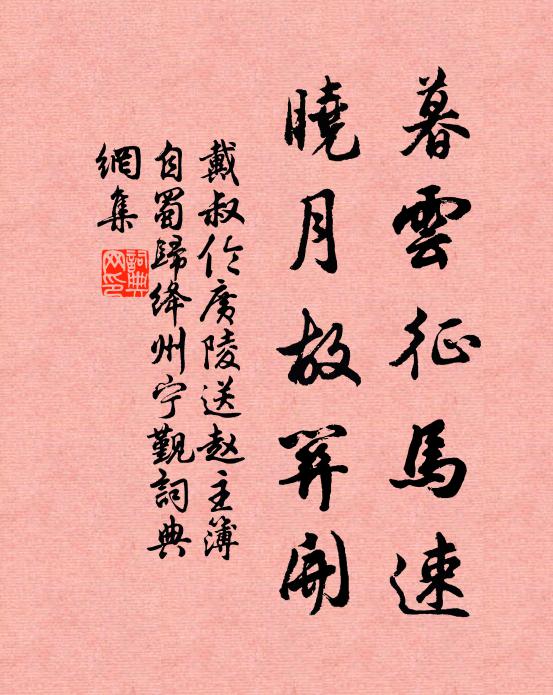 暮雲征馬速
曉月故关開
戴叔伦廣陵送赵主簿
自蜀歸绛州宁覲詞典
網集
詞典
网印